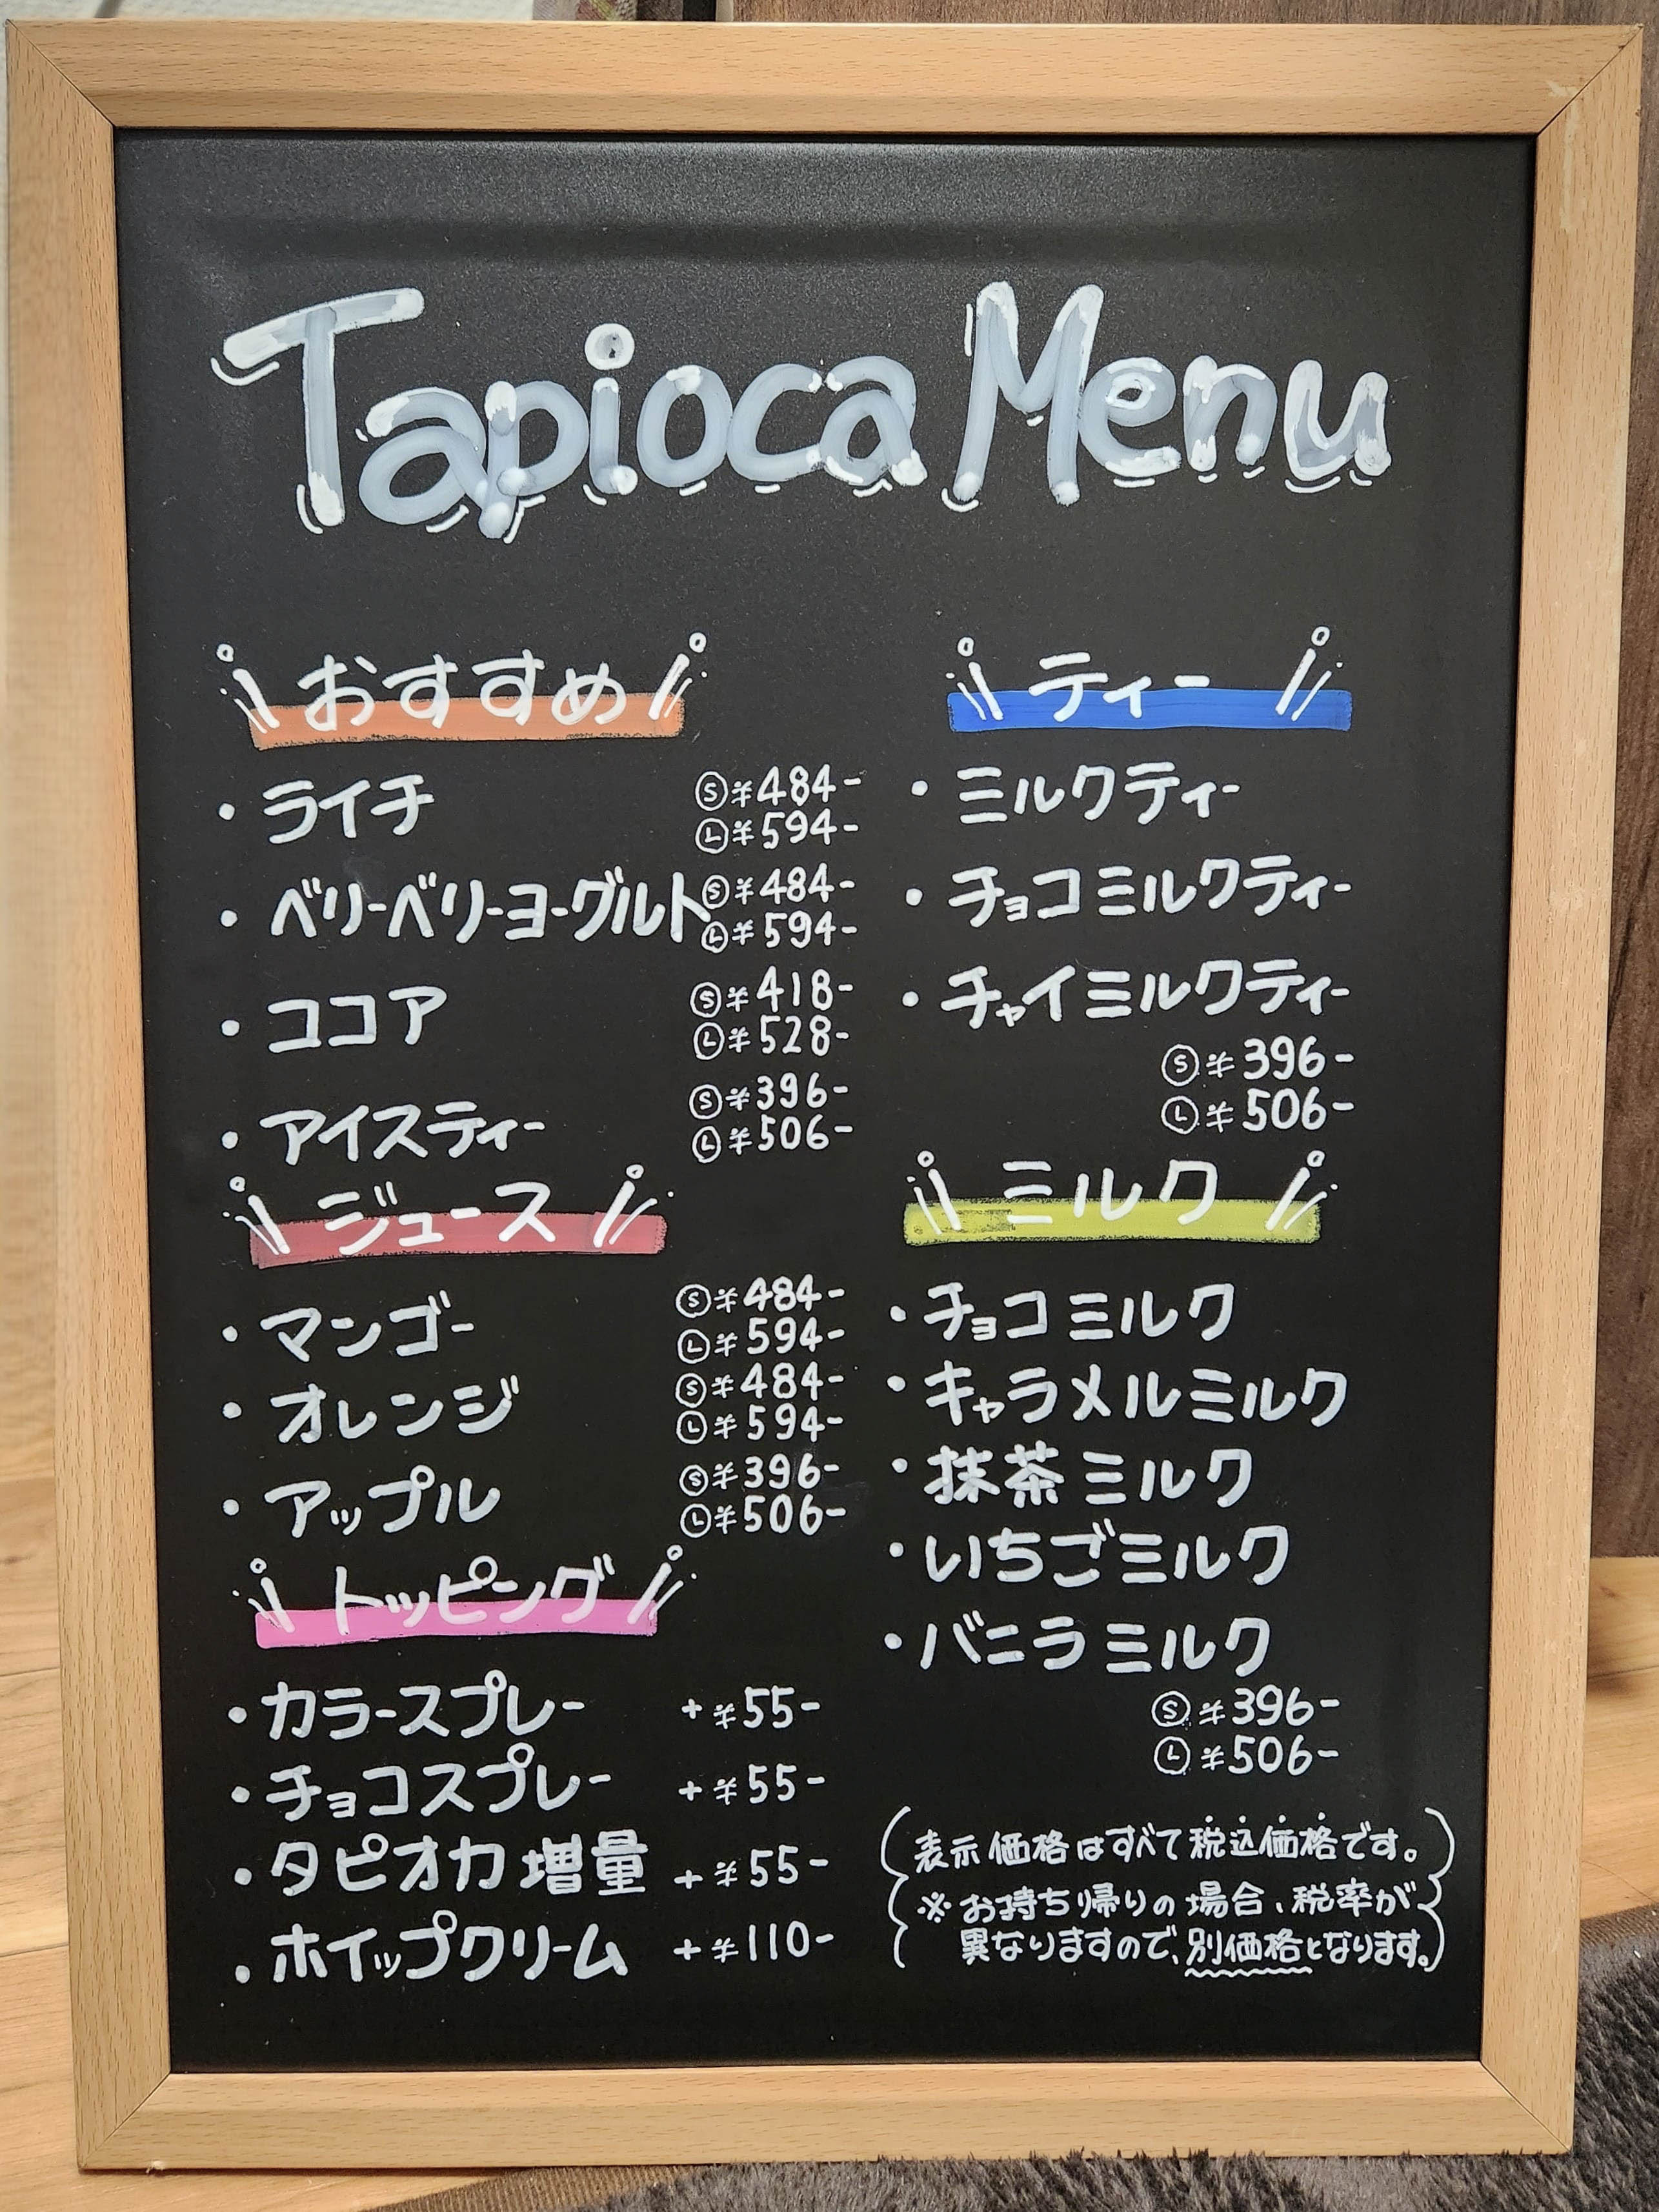 Tapioca Menu
おすすめ
・ライチ Ⓢ¥484-
Ⓛ¥594-
・ベリーベリーヨーグルト Ⓢ¥484-
Ⓛ¥594-
・ココア Ⓢ¥418-
Ⓛ¥528-
・アイスティー Ⓢ¥396-
Ⓛ¥506-
ジュース
・マンゴー Ⓢ¥484-
Ⓛ¥594-
・オレンジ Ⓢ¥484-
Ⓛ¥594-
・アップル Ⓢ¥396-
Ⓛ¥506-
トッピング
・カラースプレー +¥55-
・チョコスプレー +¥55-
・タピオカ増量 +¥55-
・ホイップクリーム +¥110-
ティー
・ミルクティー
・チョコミルクティー
・チャイミルクティー
Ⓢ¥396-
Ⓛ¥506-
ミルク
・チョコミルク
・キャラメルミルク
・抹茶ミルク
・いちごミルク
・バニラミルク
Ⓢ¥396-
Ⓛ¥506-
表示価格はすべて税込価格です。
※お持ち帰りの場合、税率が
異なりますので、別価格となります。